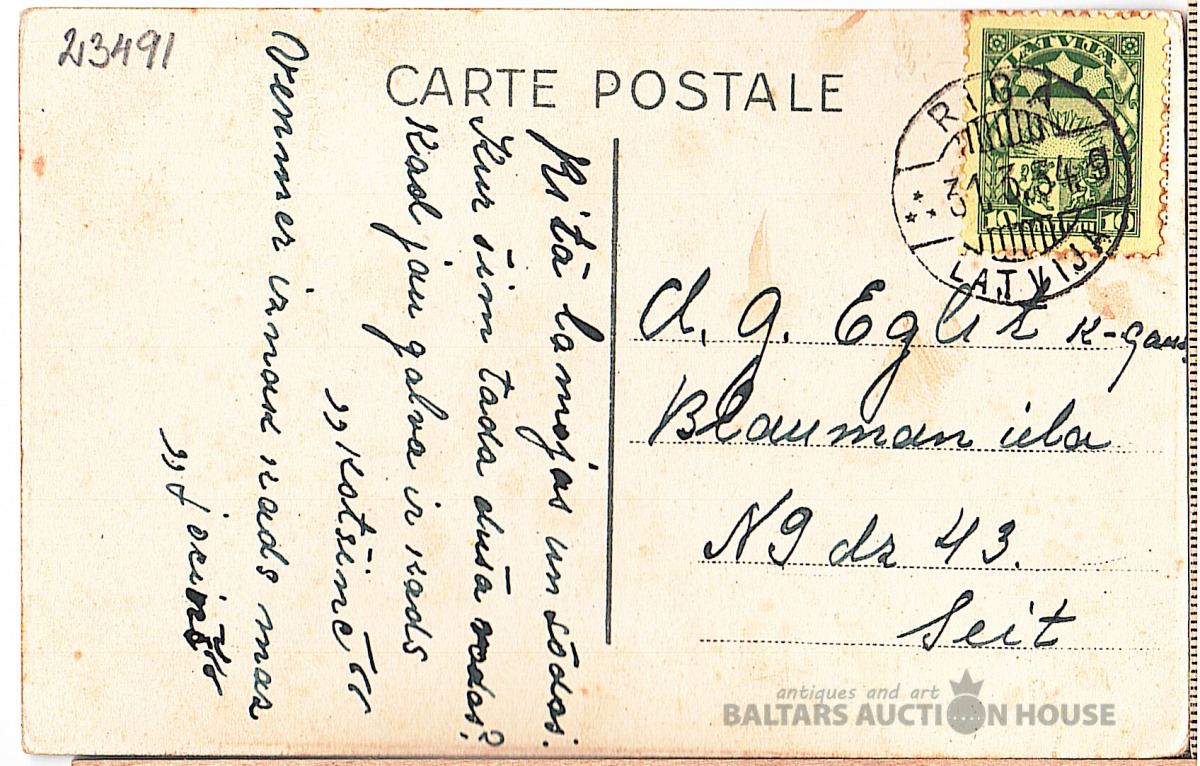 23491
CARTE POSTALE
LATVIJA
10 10
RIGA
31.3.34.9
LATVIJA
Kr̄tā lamojas un šōdos.
Kur šim tāda duša rodas?
Kad jau galva ir rads
„Kotšinē“
Vienmer iznak kads mas
„Jociņš“
A. g. Eglit K-gam
Blauman iela
N9 dz 43.
Seit
antiques and art
BALTARS AUCTION HOUSE